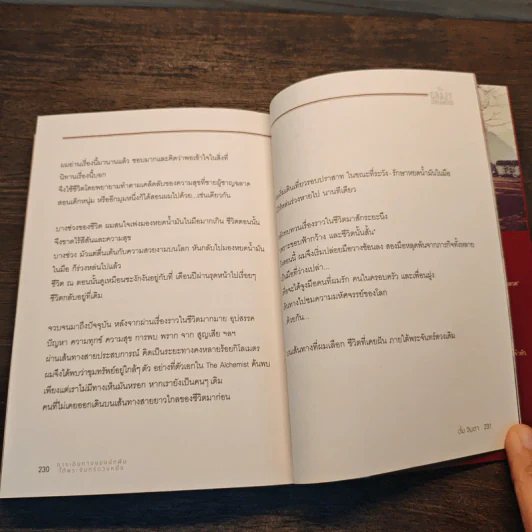 ผมอ่านเรื่องนี้มานานแล้ว ชอบมากและคิดว่าพอเข้าใจในสิ่งที่
นิทานเรื่องนี้บอก
จึงใช้ชีวิตโดยพยายามทำตามเคล็ดลับของความสุขที่ชายผู้ชาญฉลาด
สอนเด็กหนุ่ม หรืออีกมุมหนึ่งก็ได้สอนผมไปด้วย...เช่นเดียวกัน
บางช่วงของชีวิต ผมสนใจเพ่งมองหยดน้ำมันในมือมากเกิน ชีวิตตอนนั้น
จึงขาดไร้สีสันและความสุข
บางช่วง มัวแต่ตื่นเต้นกับความสวยงามบนโลก หันกลับไปมองหยดน้ำมัน
ในมือ ก็ร่วงหล่นไปแล้ว
ชีวิต ณ ตอนนั้นดูเหมือนชะงักงันอยู่กับที่ เดือนปีผ่านรุดหน้าไปเรื่อยๆ
ชีวิตกลับอยู่ที่เดิม
จวบจนมาถึงปัจจุบัน หลังจากผ่านเรื่องราวในชีวิตมากมาย อุปสรรค
ปัญหา ความทุกข์ ความสุข การพบ พราก จาก สูญเสีย ฯลฯ
ผ่านเส้นทางสายประสบการณ์ คิดเป็นระยะทางคงหลายร้อยกิโลเมตร
ผมจึงได้พบว่าขุมทรัพย์อยู่ใกล้ๆ ตัว อย่างที่ตัวเอกใน The Alchemist ค้นพบ
เพียงแต่เราไม่มีทางเห็นมันหรอก หากเรายังเป็นคนๆ เดิม
คนที่ไม่เคยออกเดินบนเส้นทางสายยาวไกลของชีวิตมาก่อน
230
เดินเที่ยวรอบปราสาท ในขณะที่ระวัง-รักษาหยดน้ำมันในมือ
หล่นร่วงหายไป นานทีเดียว
ทบทวนเรื่องราวในชีวิตมาสักระยะนึง
เพราะขอบฟ้ากว้าง และชีวิตนั้นสั้น'
ตอนนี้ ผมจึงเริ่มปล่อยมือวางช้อนลง สองมือหลุดพ้นจากภารกิจตั้งหลาย
มือที่ว่างเปล่า...
จะได้จูงมือคนที่ผมรัก คนในครอบครัว และเพื่อนฝูง
เดินทางไปชมความมหัศจรรย์ของโลก
ด้วยกัน...
บนเส้นทางที่ผมเลือก ชีวิตที่เคยฝัน ภายใต้พระจันทร์ดวงเดิม
231